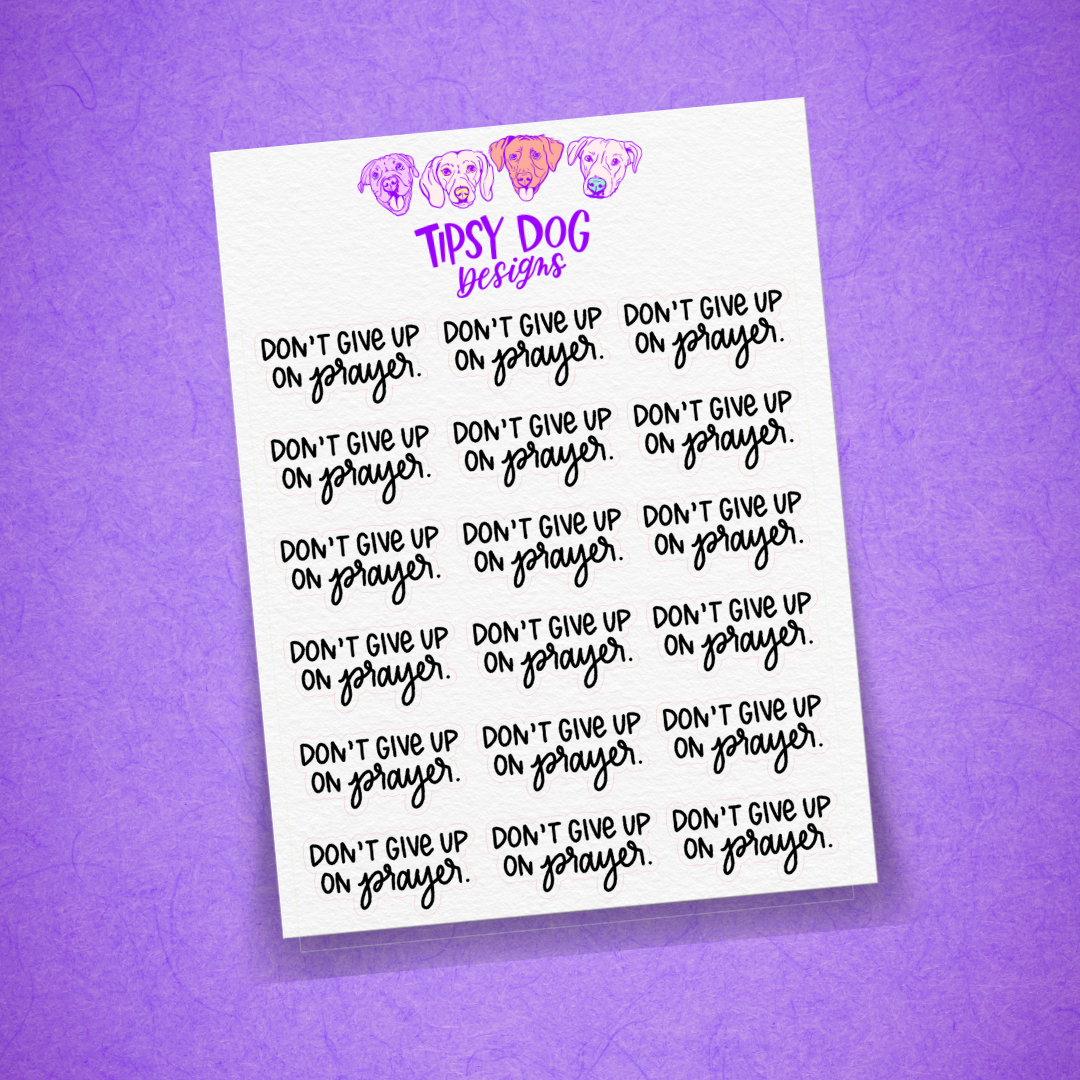 TIPSY DOG
Designs
DON'T GIVE UP DON'T GIVE UP DON'T GIVE UP
ON prayer. ON prayer. ON prayer.
DON'T GIVE UP DON'T GIVE UP DON'T GIVE UP
ON prayer. ON prayer. ON prayer.
DON'T GIVE UP DON'T GIVE UP DON'T GIVE UP
ON prayer. ON prayer. ON prayer.
DON'T GIVE UP DON'T GIVE UP DON'T GIVE UP
ON prayer. ON prayer. ON prayer.
DON'T GIVE UP DON'T GIVE UP DON'T GIVE UP
ON prayer. ON prayer. ON prayer.
DON'T GIVE UP DON'T GIVE UP DON'T GIVE UP
ON prayer. ON prayer. ON prayer.